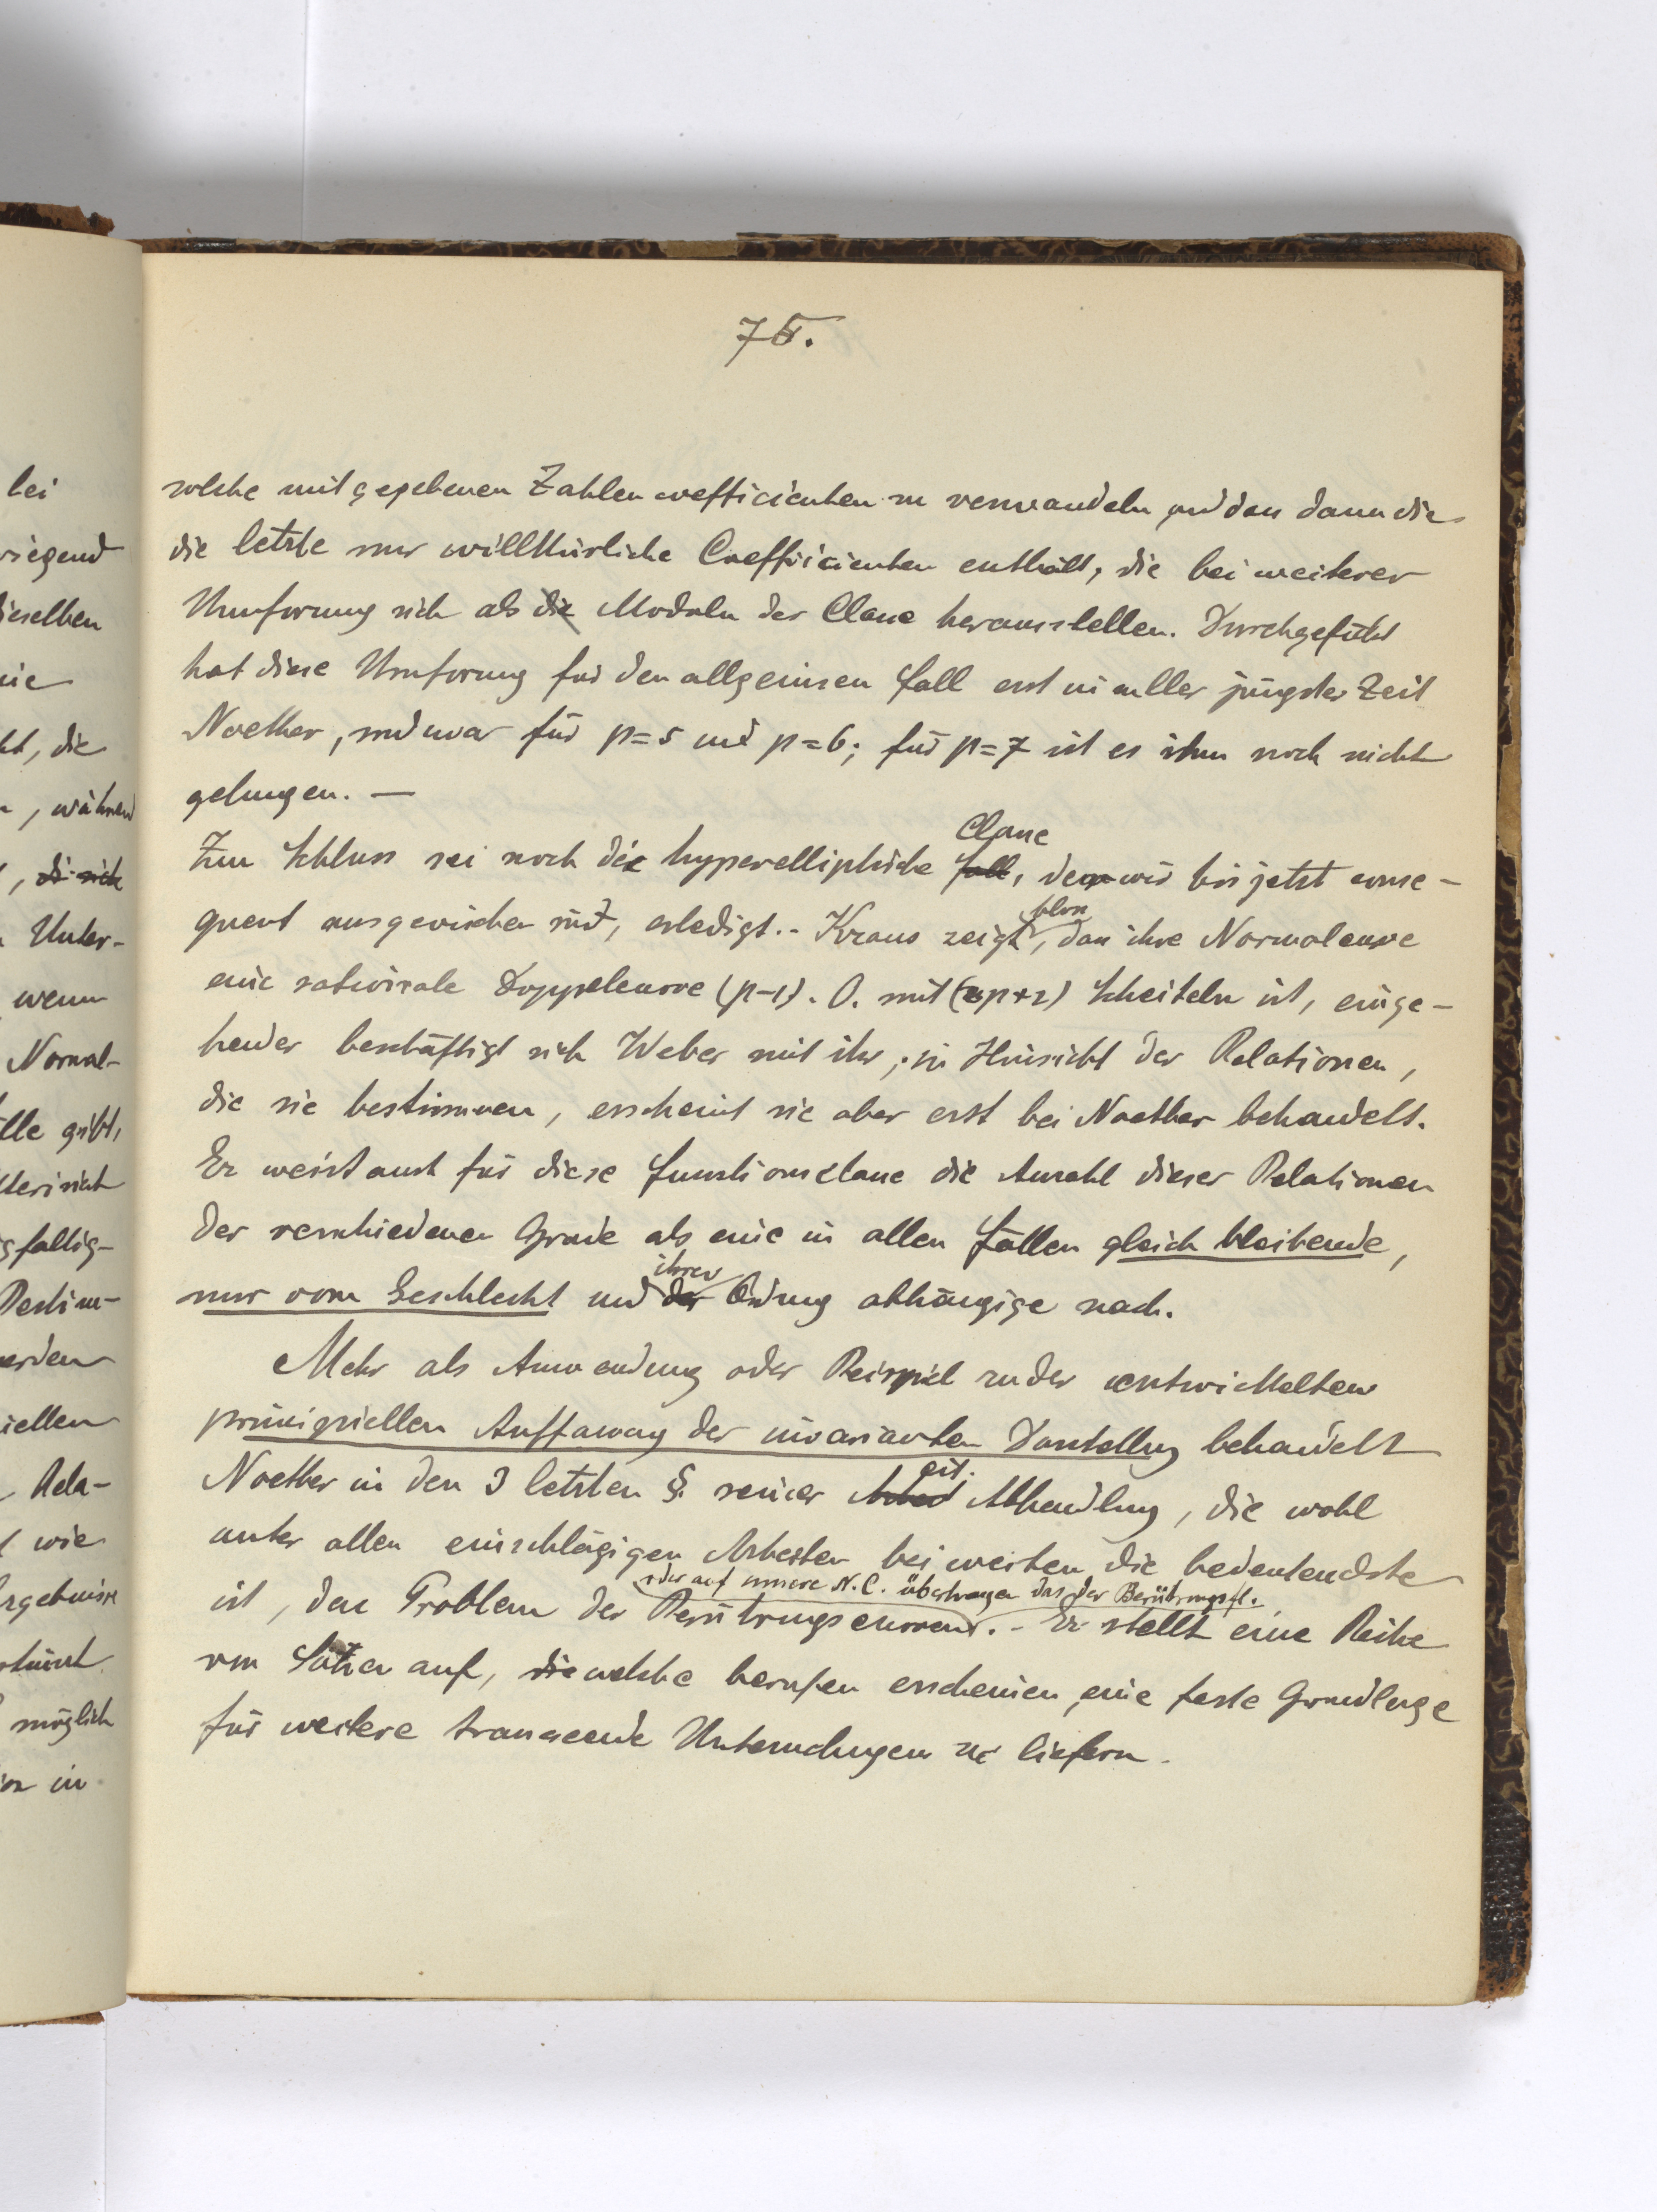 75.
solche mit gegebenen Zahlencoefficienten zu verwandeln, und dass dann die
die letzte nur willkürliche Coefficienten enthält, die bei weiterer
Umformung sich als die Moduln der Classe herausstellen. Durchgeführt
hat diese Umformung für den allgemeinen Fall erst in aller jüngster Zeit
Noether, und zwar für p=5 und p=6; für p=7 ist es ihm noch nicht
gelungen. —
Classe
Zum Schluss sei noch die hyperelliptische Fall, der wir bis jetzt conse-
quent ausgewichen sind, erledigt. - Kraus zeigt, dass ihre Normalcurve
blos
eine rationale Doppelcurve (p-1). O. mit (2p+2) Scheiteln ist, einge-
hender beschäftigt sich Weber mit ihr; in Hinsicht der Relationen,
die sie bestimmen, erscheint sie aber erst bei Noether behandelt.
Er weist auch für diese Functionsclasse die Anzahl dieser Relationen
der verschiedenen Grade als eine in allen Fällen gleich bleibende,
ihrer
nur vom Geschlecht und der Ordnung abhängige nach.
Mehr als Anwendung oder Beispiel zu der entwickelten
principiellen Auffassung der invarianten Darstellung behandelt
cit.
Noether in den 3 letzten §. seiner Arbeit Abhandlung, die wohl
unter allen einschlägigen Arbeiten bei weiten die bedeutendste
oder auf unsere N.C. übertragen das der Berührungsfl.
ist, das Problem der Berührungscurven. - Er stellt eine Reihe
von Sätzen auf, die welche berufen erscheinen, eine feste Grundlage
für weitere Untersuchungen zu liefern.
lei
riegend
dieselben
die
, während
Unter-
wenn
Normal-
lle gibt,
gfaltig-
Bestim-
werden
ziellen
Rela-
wie
Ergebnisse
möglich
in